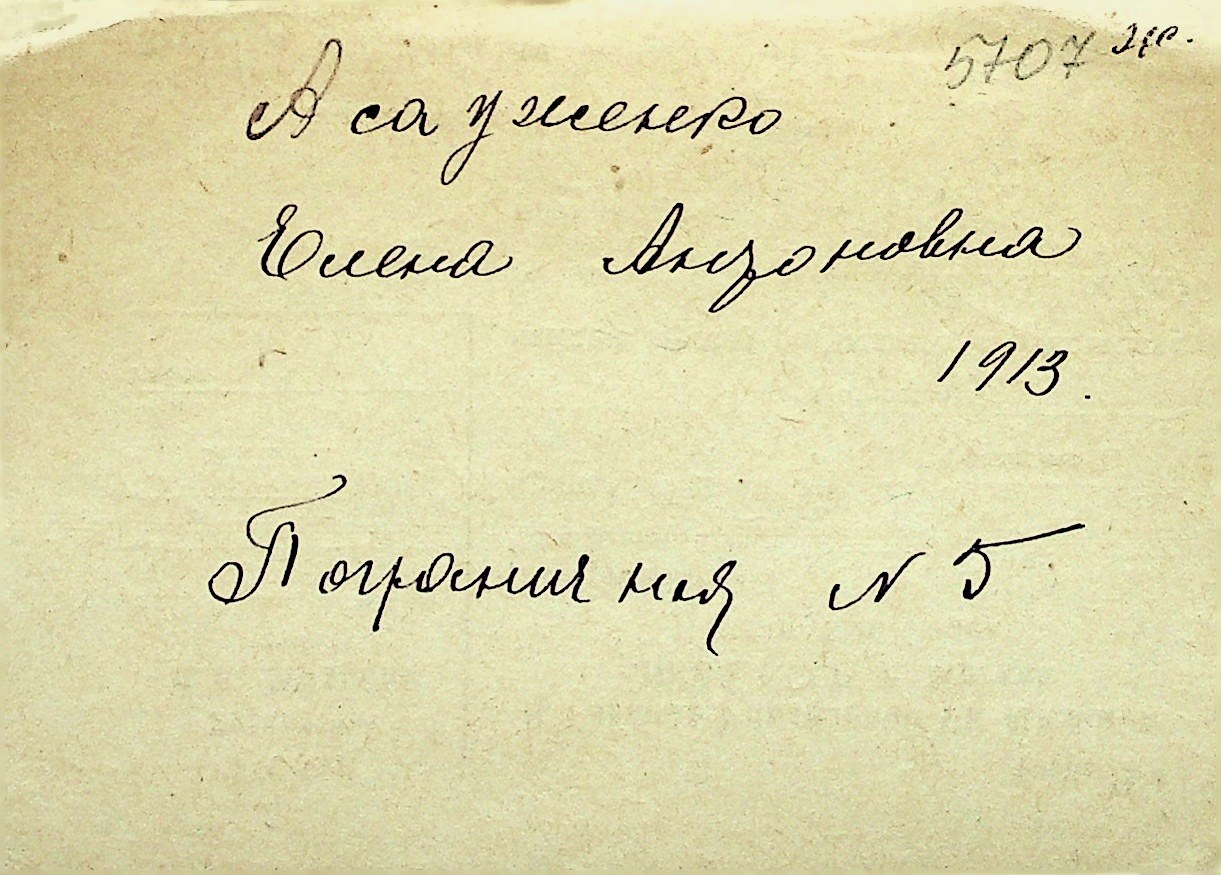 5707
Асауженко
Елена Антоновна
1913.
Пограничная N 5